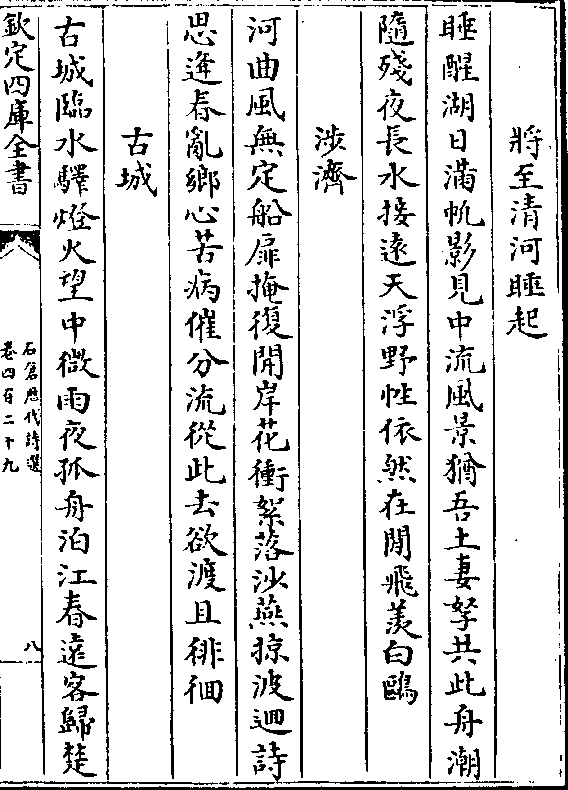 將至清河睡起
睡醒湖日滿帆影見中流風景猶吾土妻孥共此舟潮
隨殘夜長水接遠天浮野性依然在閒飛羨白鷗
涉濟
河曲風無定船扉掩復開岸花衝絮落沙燕掠波迴詩
思逢春亂鄉心苦病催分流從此去欲渡且徘徊
古城
古城臨水驛燈火望中微雨夜孤舟泊江春遠客歸楚
欽定四庫全書
石倉歷代詩選
卷四百二十九
八